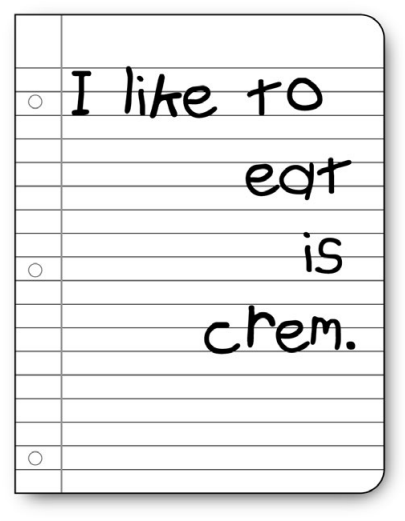 I like to
eat
is
crem.